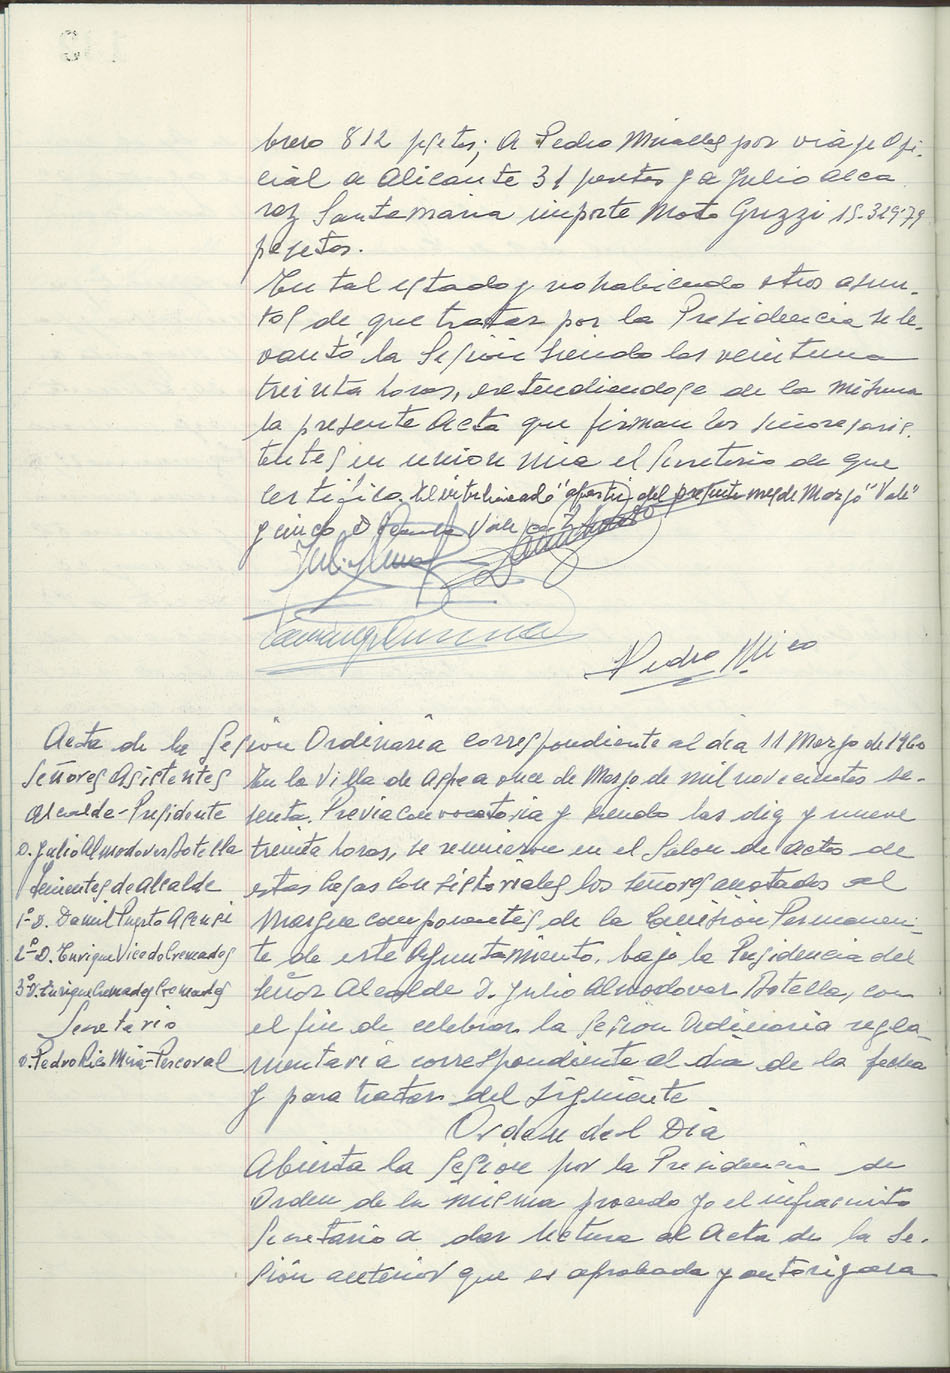 brero 812 pesetas; a Pedro Miralles por viaje Ofi-
cial a Alicante 31 pesetas y a Julio Alca
raz Santamaria importe Moto Guzzi 15.319'79
pesetas.
En tal estado y no habiendo otros asun-
tos de que tratar por la Presidencia se le-
vantó la Sesión siendo las veintiuna
treinta horas, extendiendose de la misma
la presente Acta que firman los señores asis-
tentes en union mia el Secretario de que
Certifico. El interlineado del presente mes de Marzo "Vale"
y cinco Vale
Pedro Mico
Acta de la Sesión Ordinaria correspondiente al dia 11 Marzo de 1960
Señores Asistentes
Alcalde-Presidente
D. Julio Almodovar Botella
Tenientes de Alcalde
1º D. Daniel Puerto Asensi
2º D. Enrique Vicedo Cremades
3º D. Enrique Cremades Cremades
Secretario
D. Pedro
En la Villa de Aspe a once de Marzo de mil novecientos se-
senta. Previa convocatoria y siendo las diez y nueve
treinta horas, se reunieron en el Salon de Actos de
estas Casas Consistoriales los señores anotados al
Margen componentes de la Comisión Permanen-
te de este Ayuntamiento, bajo la Presidencia del
Señor Alcalde D. Julio Almodovar Botella, con
el fin de celebrar la Sesion Ordinaria regla-
mentaria correspondiente al dia de la fecha
y para tratar del siguiente
Orden del Dia
Abierta la Sesion por la Presidencia de
Orden de la misma procedo yo el infrascrito
Secretario a dar lectura al Acta de la Se-
sión anterior que es aprobada y